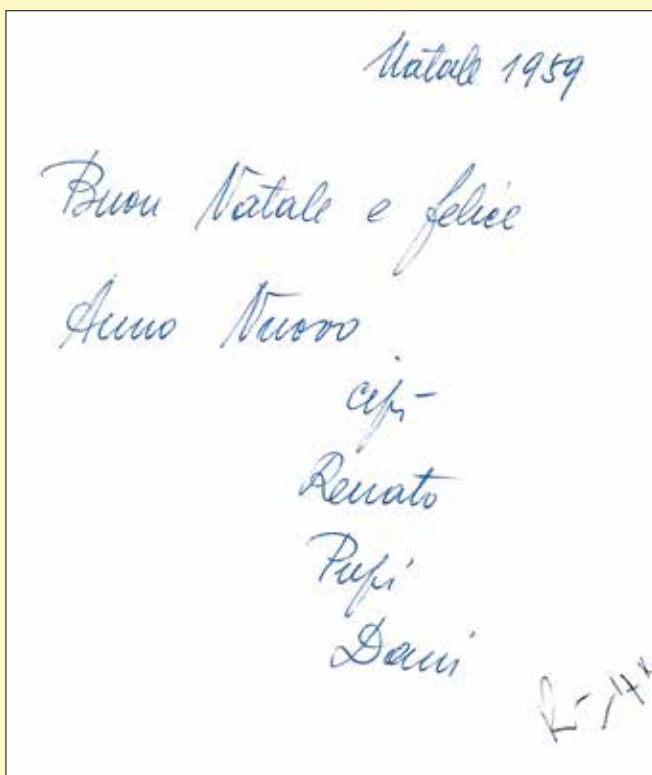 Natale 1959
Buon Natale e felice
Anno Nuovo
Cipi
Renato
Pupi
Dani